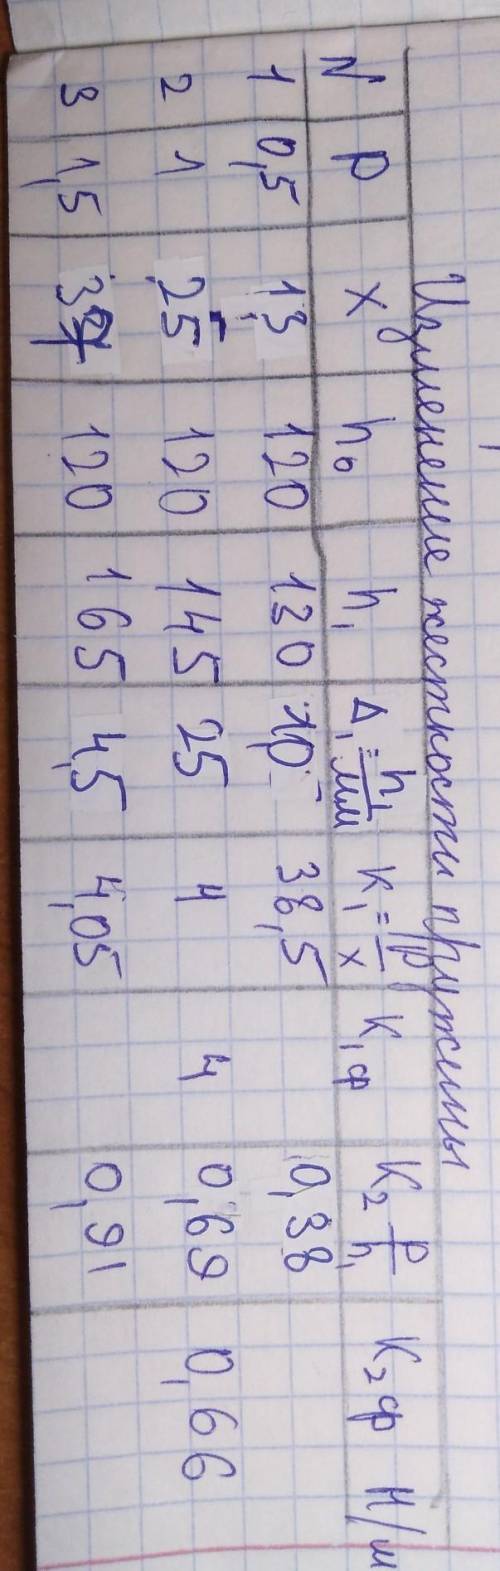 Изменение жесткости пружины
N P x h₀ h₁ Δ₁=h₁/мм K₁=P/x K₁ф K₂ P/h₁ K₂ф Н/м
1 0,5 13 120 130 10 38,5 0,38
2 1 25 120 145 25 4 4 0,69 0,66
3 1,5 120 165 4,5 4,05 0,91